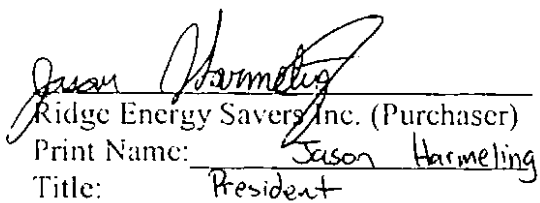 Jason Harmeling
Ridge Energy Savers Inc. (Purchaser)
Print Name: Jason Harmeling
Title: President